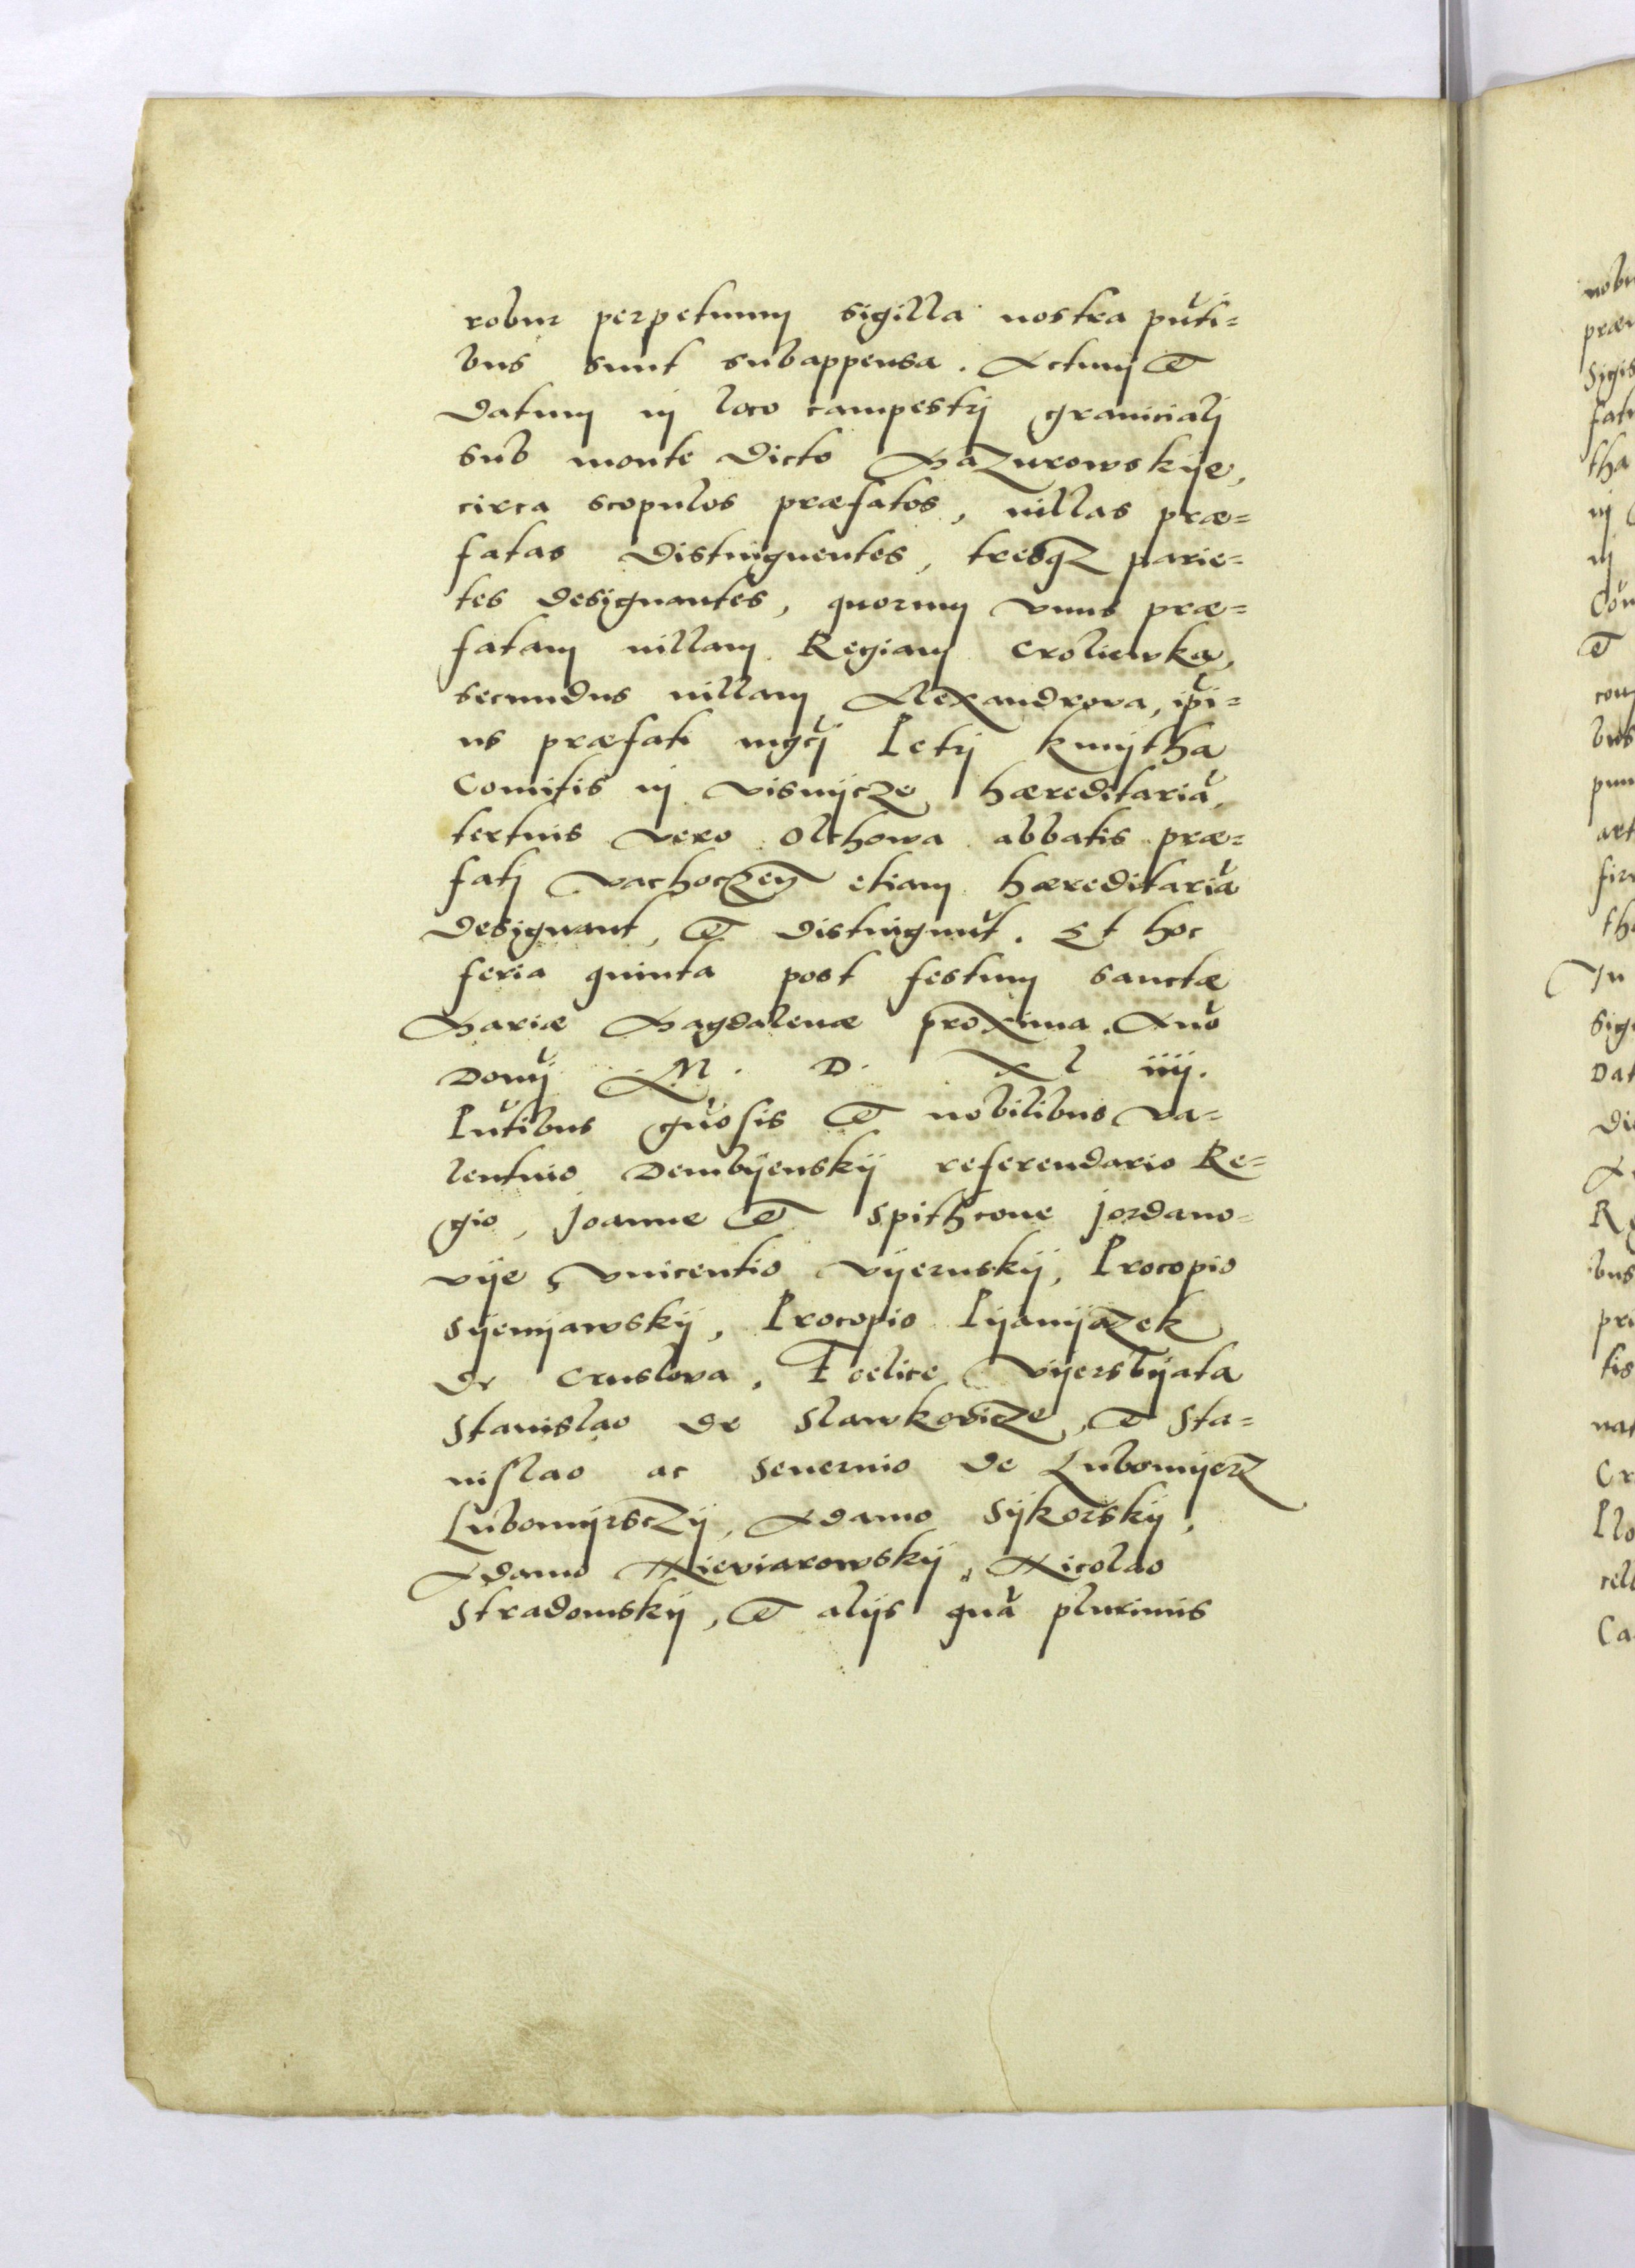 robur perpetuum sigilla nostra pñti=
bus sunt subappensa. Actum &
datum in loco campestri graniciali
sub monte dicto Mazurowskije,
circa scopulos præfatos, uillas præ=
fatas distinguentes, tresqz parie=
tes designantes, quorum vnus præ=
fatam uillam Regiam Croliewka,
secundus uillam Alexandrova, ip̃i=
us præfati mgc̃i Petrj Kmijtha
Comitis in Visnijcze hæreditariã,
tertius vero Olchowa abbatis præ=
fatj Vachoczeñ etiam hæreditariã
designant, & distinguũt. Et hoc
feria quinta post festum sanctæ
Mariæ Magdalenæ proxima. Anõ
Domĩ M. D. X l iiij.
Pñtibus gñosis & nobilibus Va=
lentino Dembijenskij referendario Re=
gio, Joanne & Spithcone Jordano=
vije, Vincentio Vijernskij, Procopio
Sijenijawskij, Procopio Pijanijazek
de Cruslova, Foelice Vijersbijata
Stanislao de Slawkovicze, & Sta=
nislao ac Seuerino de Lubomijerz
Lubomijrsczij, Adamo Sijkorskij,
Adamo Nieviarowskij, Nicolao
Stradomskij, & alijs quã plurimis